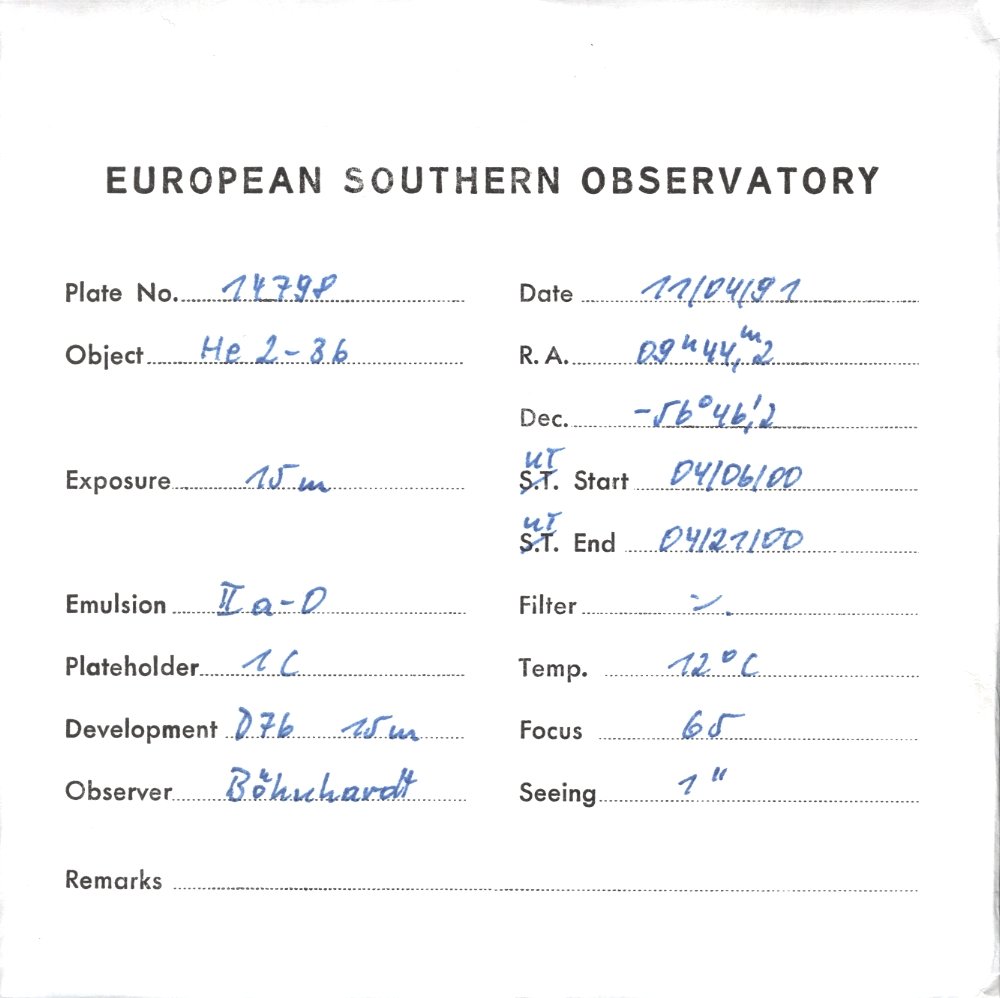 EUROPEAN SOUTHERN OBSERVATORY
Plate No. 14798 Date 11/04/91
Object He 2-36 R. A. 09ʰ44,ᵐ2
Dec. -56°46,'2
UT
Exposure 15 m S.T. Start 04/06/00
UT
S.T. End 04/21/00
Emulsion IIa-O Filter -/.
Plateholder 1 C Temp. 12°C
Development D76 15 m Focus 65
Observer Böhnhardt Seeing 1"
Remarks